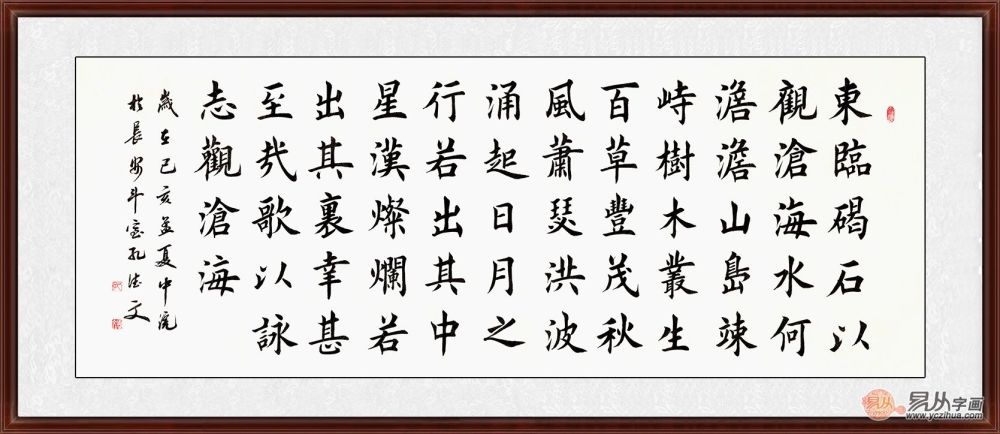 東臨碣石以
觀滄海水何
澹澹山島竦
峙樹木叢生
百草豐茂秋
風蕭瑟洪波
涌起日月之
行若出其中
星漢燦爛若
出其裏幸甚
至哉歌以詠
志觀滄海
歲在己亥孟夏中浣
於長安斗室孔德文
易从字画
www.yczihua.com